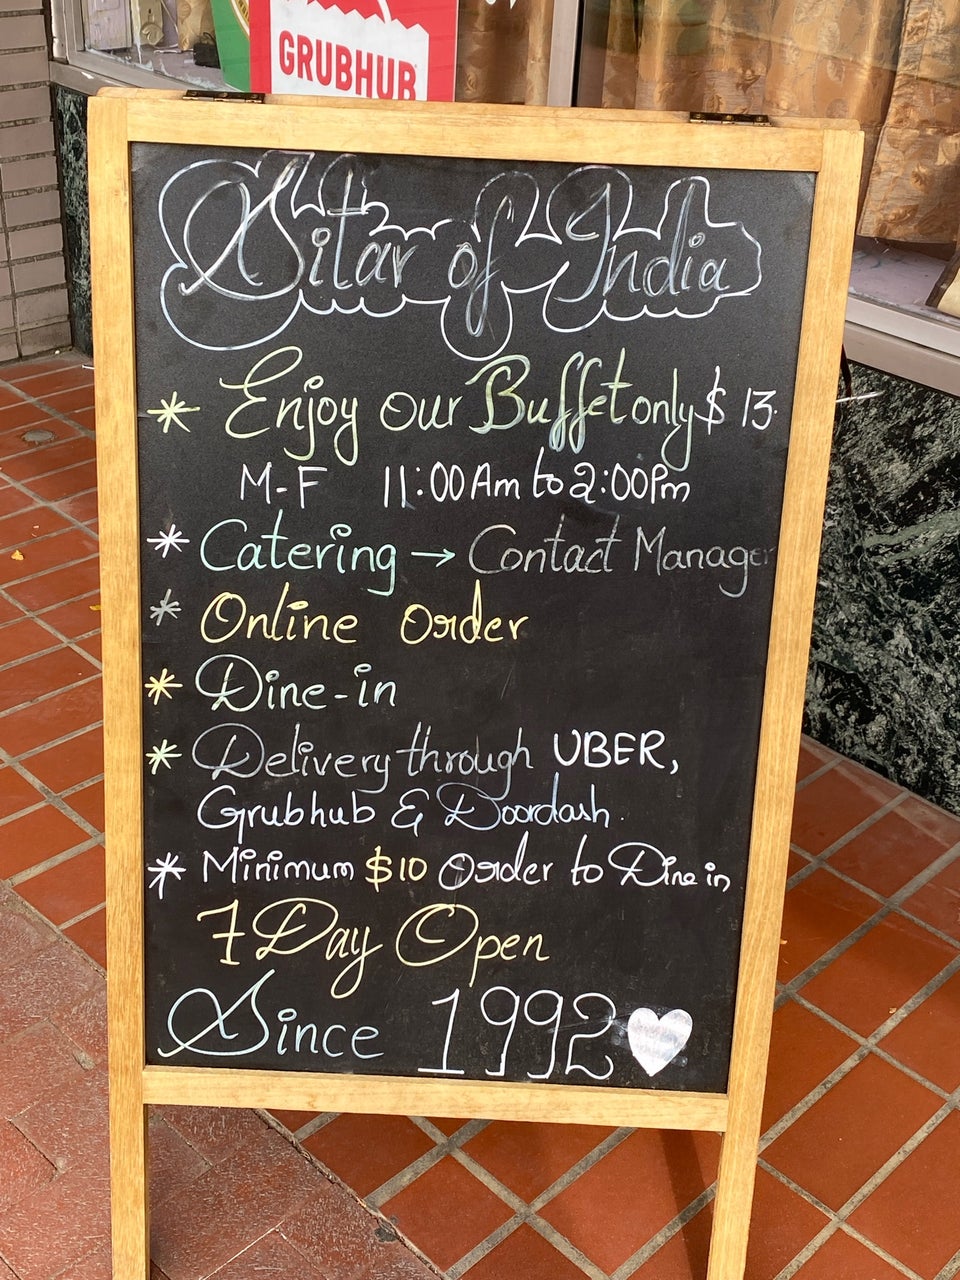 GRUBHUB
Sitar of India
* Enjoy our Buffet only $ 13.
M-F 11:00Am to 2:00Pm
* Catering → Contact Manager
* Online Order
* Dine-in
* Delivery through UBER,
Grubhub & Doordash.
* Minimum $10 Order to Dine in
7 Day Open
Since 1992